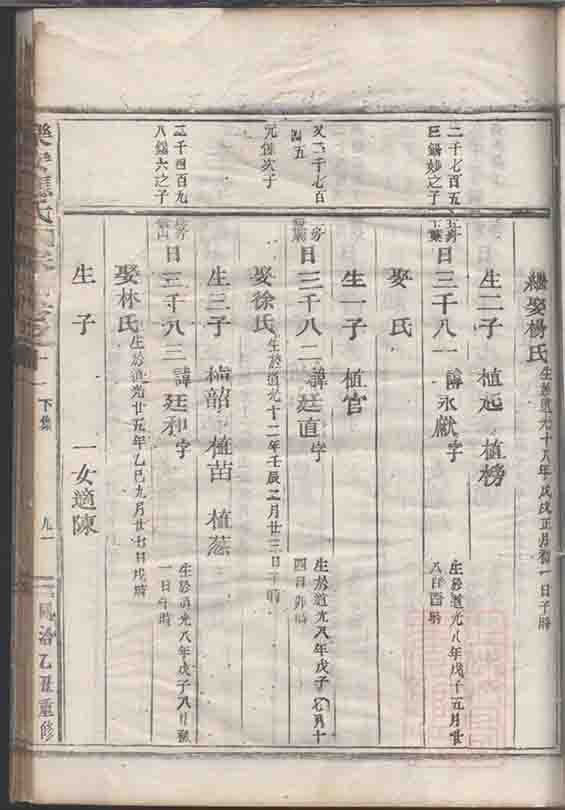 繼娶楊氏 生於道光十八年戊戌正月初一日子時
生二子 植起 植榜
二千七百五
巨錫妙之子
日三千八一 諱永獻 字 生於道光八年戊子五月廿
八日酉時
娶氏
生一子 植官
又二千七百
四五
日三千八二 諱廷直 字 生於道光八年戊子七月十
四日卯時
元 次子
娶徐氏 生於道光十二年壬辰二月廿三日子時
生三子 植韶 植苗 植蕊
二千四百九
八錫六之子
日三千八三 諱廷和 字 生於道光八年戊子八月初
一日 時
娶林氏 生於道光廿五年乙巳九月廿七日戌時
生子 一女適陳
下集
九一
同治乙丑重修